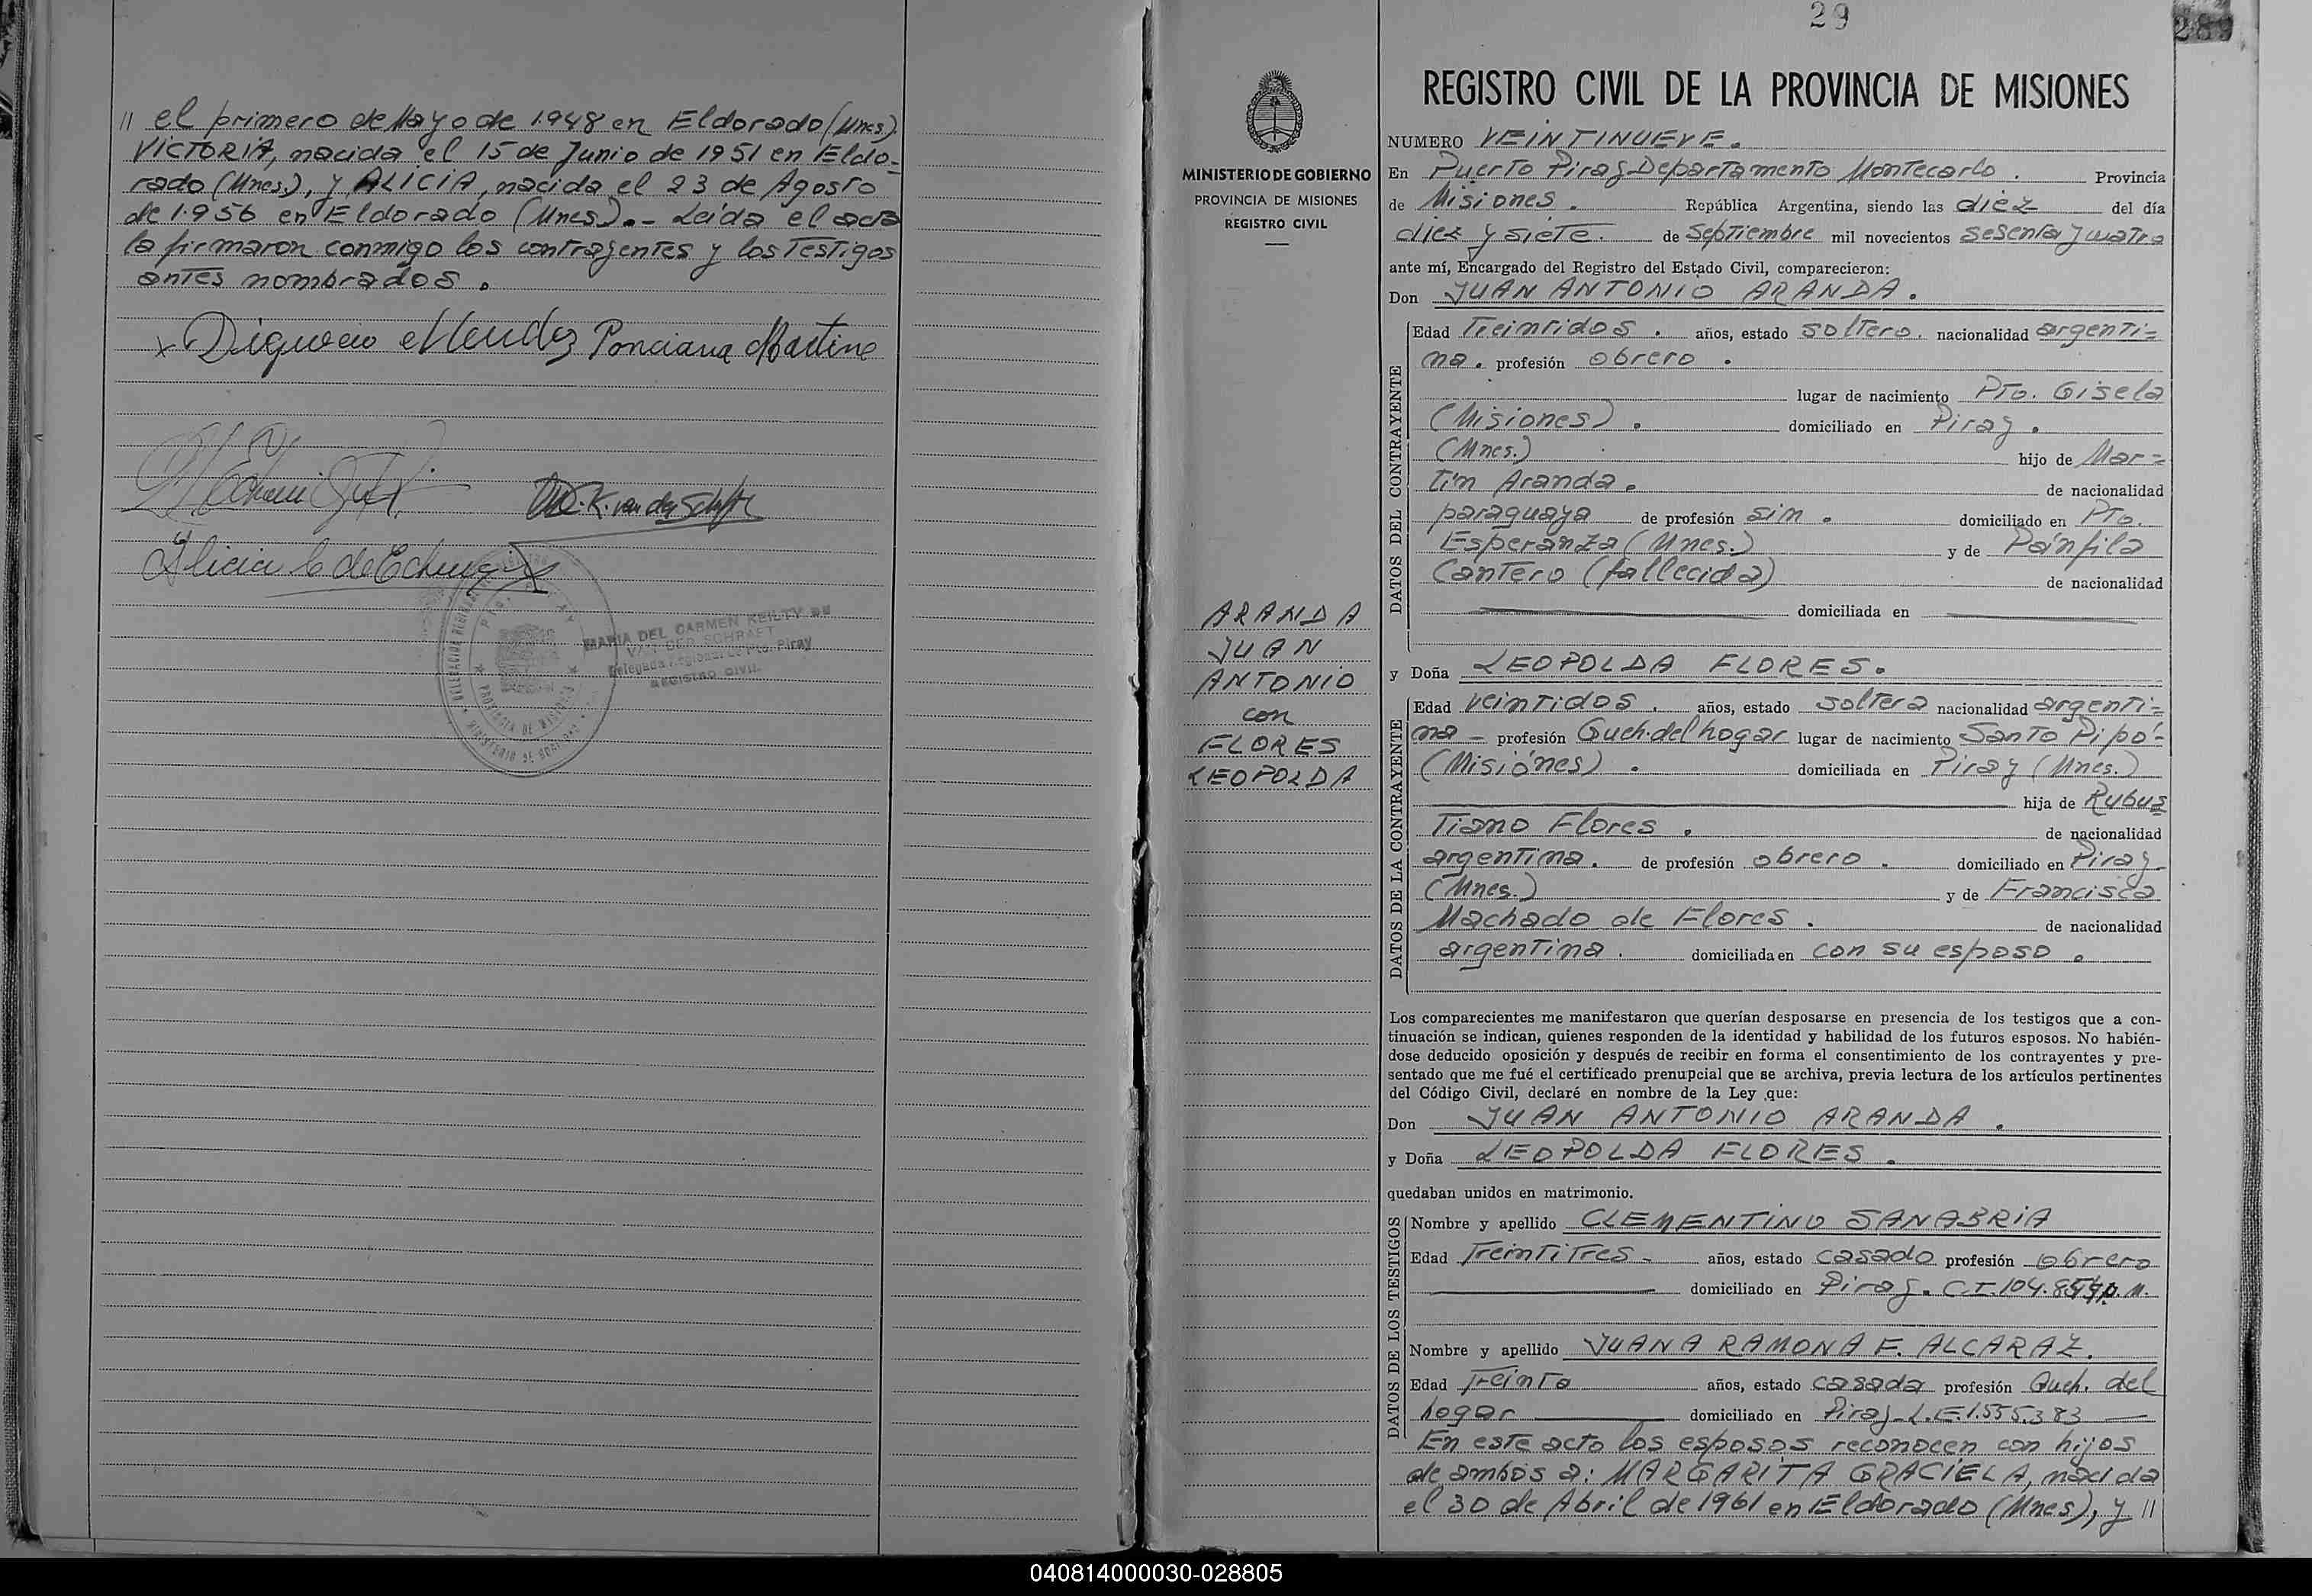 // el primero de Mayo de 1.948 en Eldorado (Mnes.)
VICTORIA, nacida el 15 de Junio de 1951 en Eldo-
rado (Mnes), y ALICIA, nacida el 23 de Agosto
de 1.956 en Eldorado (Mnes).- Leida el acta
la firmaron conmigo los contrayentes y los testigos
antes nombrados.
x Mendez Ponciana Martine
Alicia
MARIA DEL CARMEN KEILTY DE
VAN DER SCHRAFT
Delegada Regional de Pto. Piray
REGISTRO CIVIL
MINISTERIO DE GOBIERNO
PROVINCIA DE MISIONES
REGISTRO CIVIL
ARANDA
JUAN
ANTONIO
con
FLORES
LEOPOLDA
29
289
REGISTRO CIVIL DE LA PROVINCIA DE MISIONES
NUMERO VEINTINUEVE.
En Puerto Piray Departamento Montecarlo. Provincia
de Misiones. República Argentina, siendo las diez del día
diez y siete. de Septiembre mil novecientos sesenta y cuatro
ante mí, Encargado del Registro del Estado Civil, comparecieron:
Don JUAN ANTONIO ARANDA.
DATOS DEL CONTRAYENTE
Edad Treintidos. años, estado soltero. nacionalidad argenti=
na. profesión obrero.
lugar de nacimiento Pto. Gisela
(Misiones). domiciliado en Piray.
(Mnes.) hijo de Mar=
tín Aranda. de nacionalidad
paraguaya de profesión sin. domiciliado en Pto.
Esperanza (Mnes.) y de Pánfila
Cantero (fallecida) de nacionalidad
domiciliada en
y Doña LEOPOLDA FLORES.
DATOS DE LA CONTRAYENTE
Edad veintidos. años, estado soltera nacionalidad argenti=
na - profesión Queh. del hogar lugar de nacimiento Santo Pipó-
(Misiónes). domiciliada en Piray (Mnes.)
hija de Rubus
Tiano Flores. de nacionalidad
argentina. de profesión obrero. domiciliado en Piray
(Mnes.) y de Francisca
Machado de Flores. de nacionalidad
argentina. domiciliada en con su esposo.
Los comparecientes me manifestaron que querían desposarse en presencia de los testigos que a con-
tinuación se indican, quienes responden de la identidad y habilidad de los futuros esposos. No habién-
dose deducido oposición y después de recibir en forma el consentimiento de los contrayentes y pre-
sentado que me fué el certificado prenupcial que se archiva, previa lectura de los artículos pertinentes
del Código Civil, declaré en nombre de la Ley que:
Don JUAN ANTONIO ARANDA.
y Doña LEOPOLDA FLORES.
quedaban unidos en matrimonio.
DATOS DE LOS TESTIGOS
Nombre y apellido CLEMENTINO SANABRIA
Edad Treintitres - años, estado casado profesión obrero
domiciliado en Piray. C.I. P.M.
Nombre y apellido JUANA RAMONA F. ALCARAZ.
Edad Treinta años, estado casada profesión Queh. del
hogar domiciliado en Piray - L.E. 1.555.383
En este acto los esposos reconocen con hijos
de ambos a: MARGARITA GRACIELA, nacida
el 30 de Abril de 1961 en Eldorado (Mnes), y //
040814000030-028805